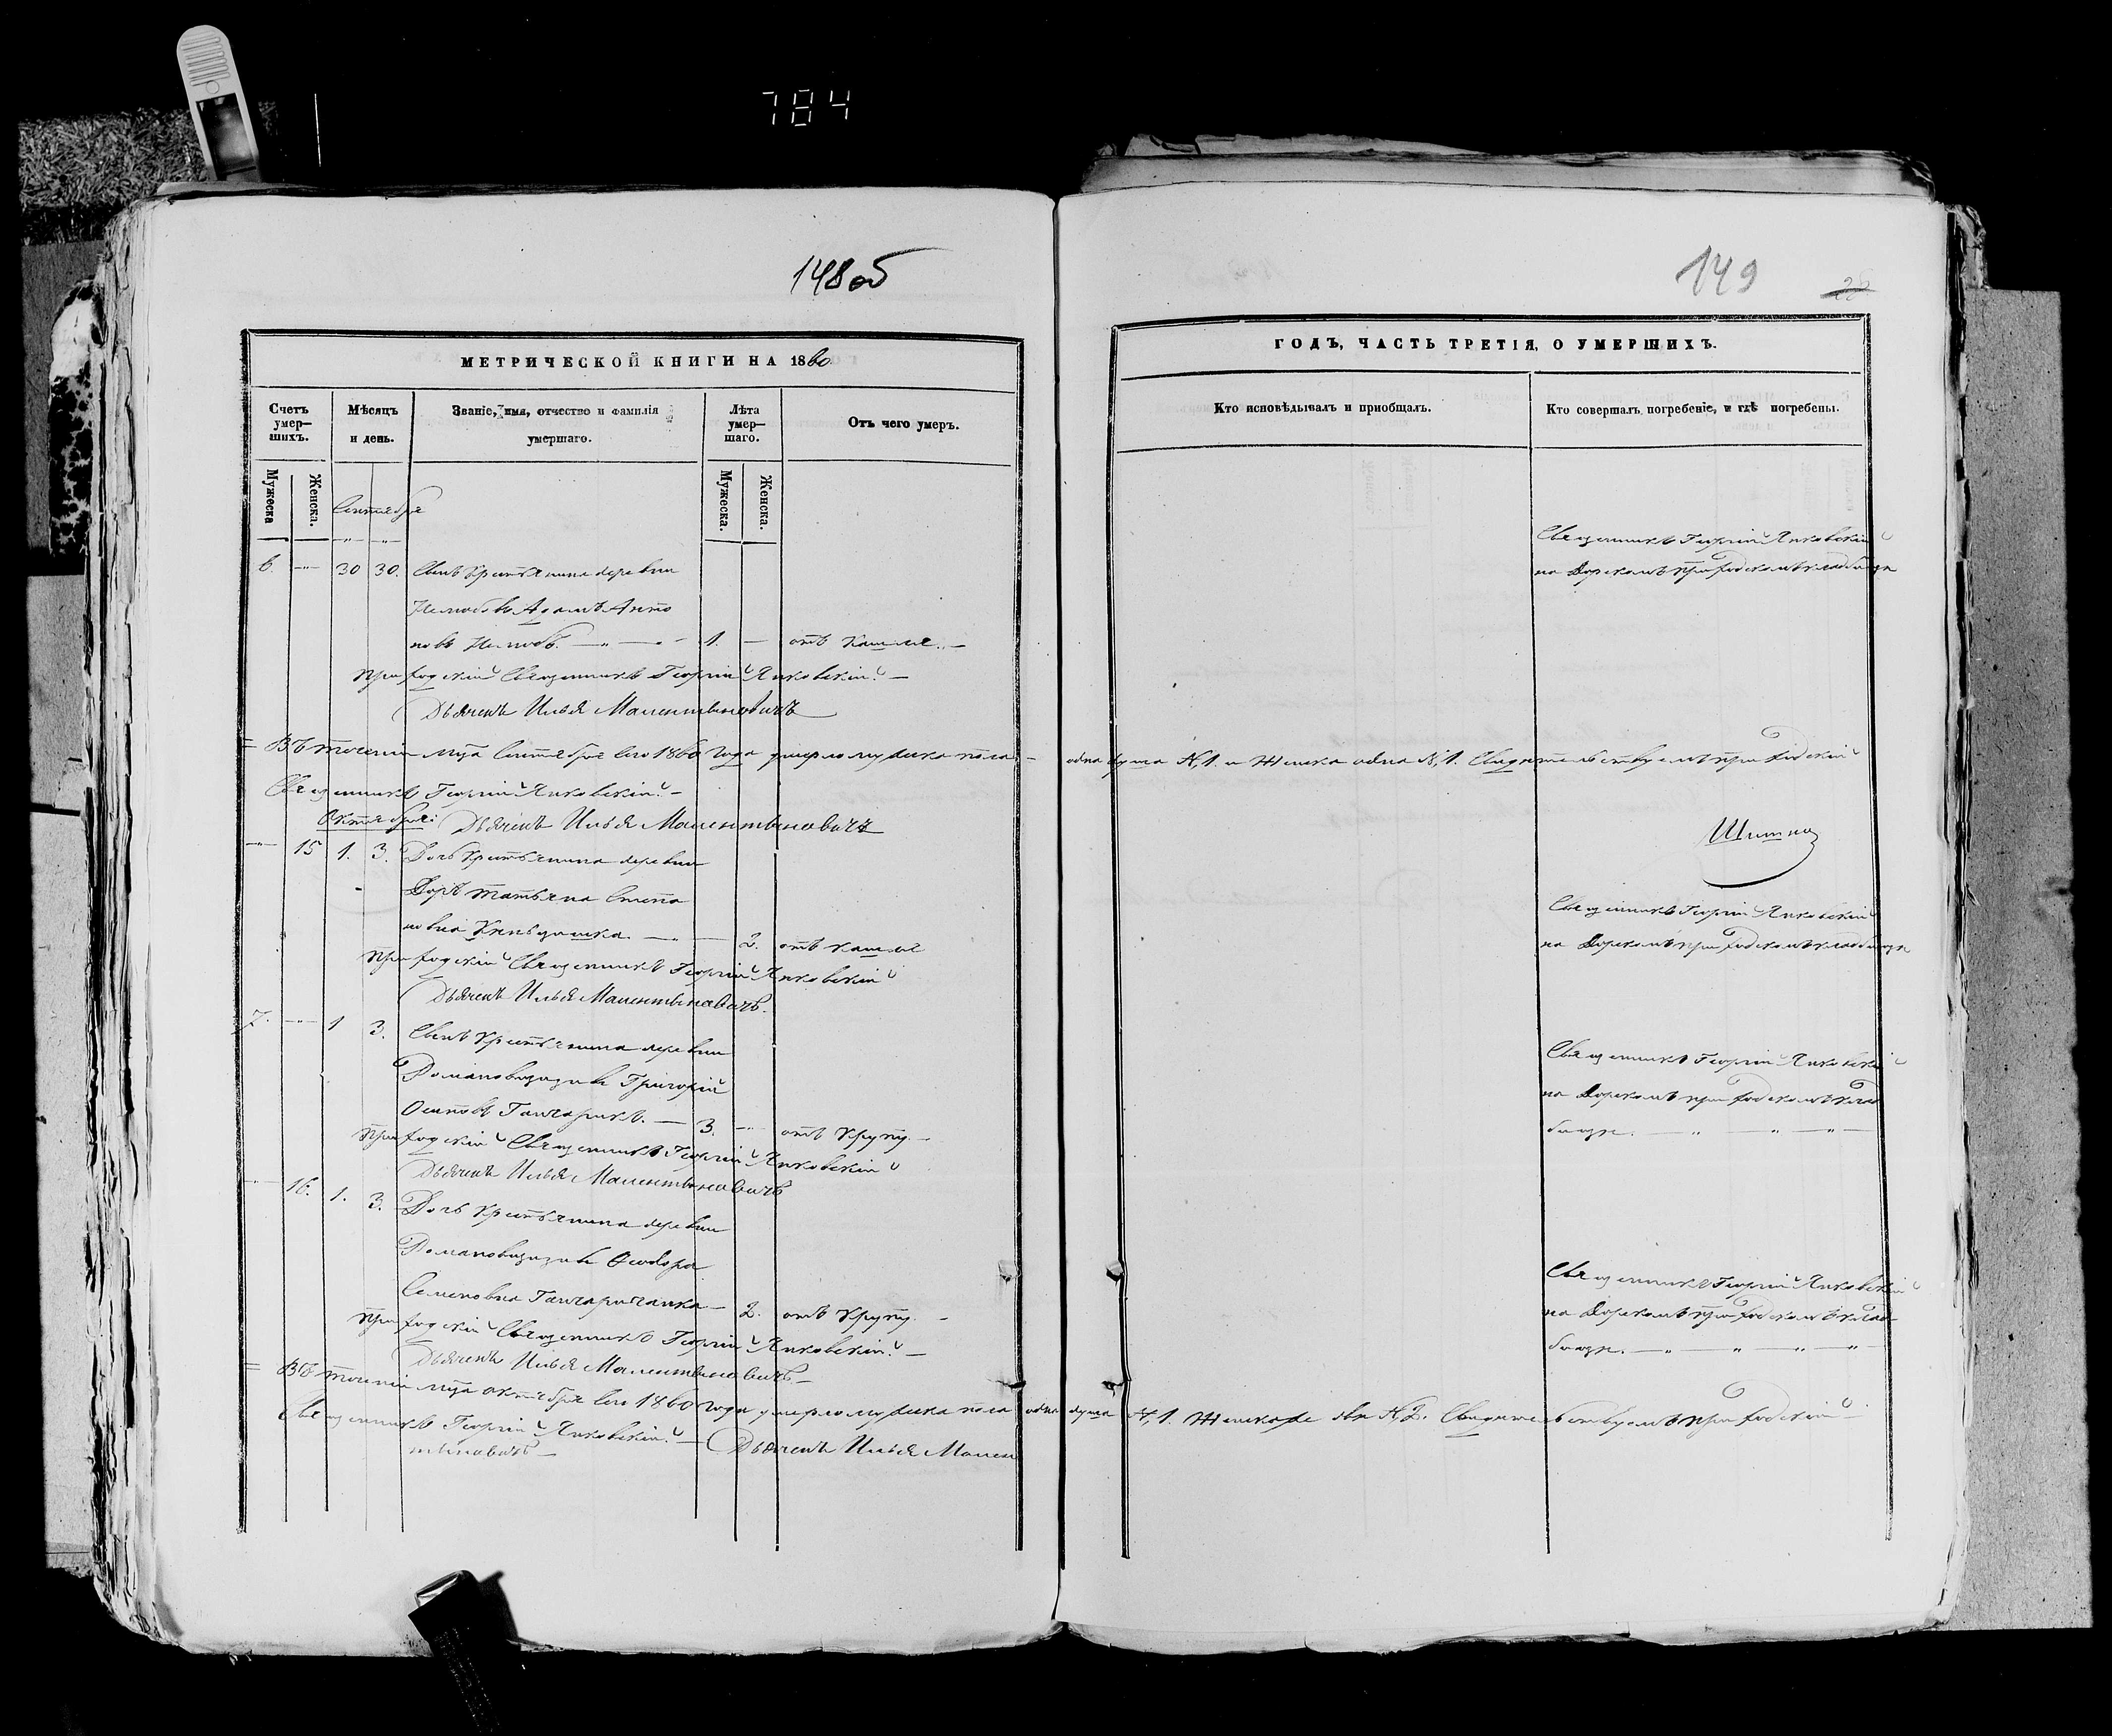 784
148об
МЕТРИЧЕСКОЙ КНИГИ НА 1860.
Счетъ умер— шихъ.
Мѣсяцъ и день.
Званіе, имя, отчество и фамилія умершаго.
Лѣта умер— шаго.
Отъ чего умеръ.
Мужеска
Женска.
Мужеска.
Женска.
Сентября
6. 30 30. Сынъ Крестьянина деревни
Адамъ Анто
новъ 1. — отъ Кашля. —
Приходскій Священникъ Георгій Янковскій. —
Дьячекъ Илья
= Въ теченіи мца Сентября сего 1860 года умерло мужска пола —
Священникъ Георгій Янковскій. —
Октября: Дьячекъ Илья
15 1. 3. Дочь Крестьянина деревни
Доръ Татьяна Степа
новна 2. отъ кашля
Приходскій Священникъ Георгій Янковскій
Дьячекъ Илья
7. 1 3. Сынъ Крестьянина деревни
Григорій
Осиповъ Ганчарикъ. — 3. отъ Крупу. —
Приходскій Священникъ Георгій Янковскій
Дьячекъ Илья
16. 1. 3. Дочь Крестьянина деревни
Ѳеодора
Семеновна Ганчаричанка — 2. отъ Крупу. —
Приходскій Священникъ Георгій Янковскій. —
Дьячекъ Илья
= Въ теченіи мца октября сего 1860 года умерло мужска пола
Священникъ Георгій Янковскій. — Дьячекъ Илья
149
28
ГОДЪ, ЧАСТЬ ТРЕТІЯ, О УМЕРШИХЪ.
Кто исповѣдывалъ и пріобщалъ.
Кто совершалъ погребеніе, и гдѣ погребены.
Священникъ Георгій Янковскій
на Дорскомъ приходскомъ кладбищѣ
одна душа №, 1. и Женска одна №, 1. Свидѣтельствуемъ приходскій
Священникъ Георгій Янковскій
на Дорскомъ приходскомъ кладбищѣ
Священникъ Георгій Янковскій
на Дорскомъ приходскомъ клад
бищѣ.
Священникъ Георгій Янковскій
на Дорскомъ приходскомъ клад
бищѣ.
одна душа №, 1. Женска же двѣ №, 2. Свидѣтельствуемъ приходскій